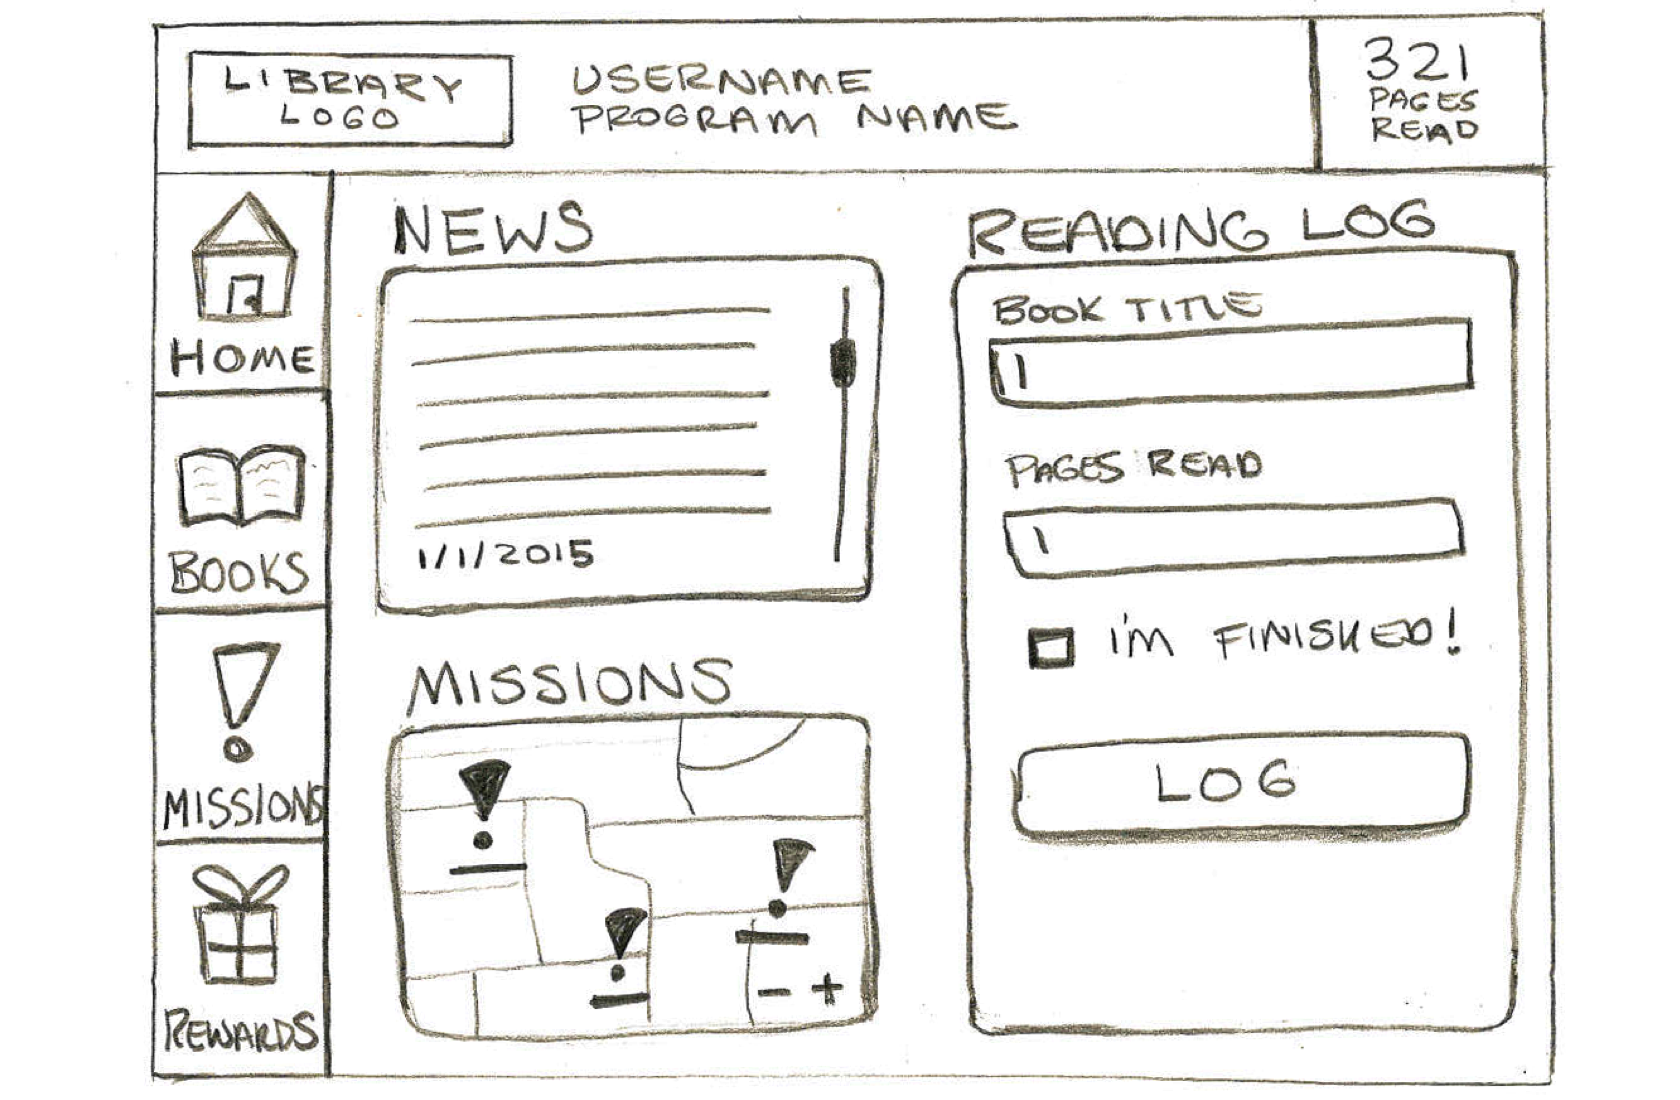 LIBRARY
LOGO
USERNAME
PROGRAM NAME
321
PAGES
READ
HOME
BOOKS
MISSIONS
REWARDS
NEWS
1/1/2015
MISSIONS
- +
READING LOG
BOOK TITLE
PAGES READ
I'M FINISHED!
LOG